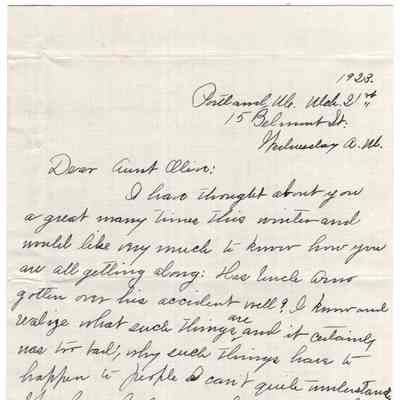 1923.
Portland, Me. Mch. 21st
15 Belmont St.
Wednesday A.M.
Dear Aunt Olive:
I have thought about you
a great many times this winter and
would like very much to know how you
are all getting along: Has Uncle
gotten over his accident well? I know and
realize what such things are and it certainly
was too bad, why such things have to
happen to people I can't quite understand